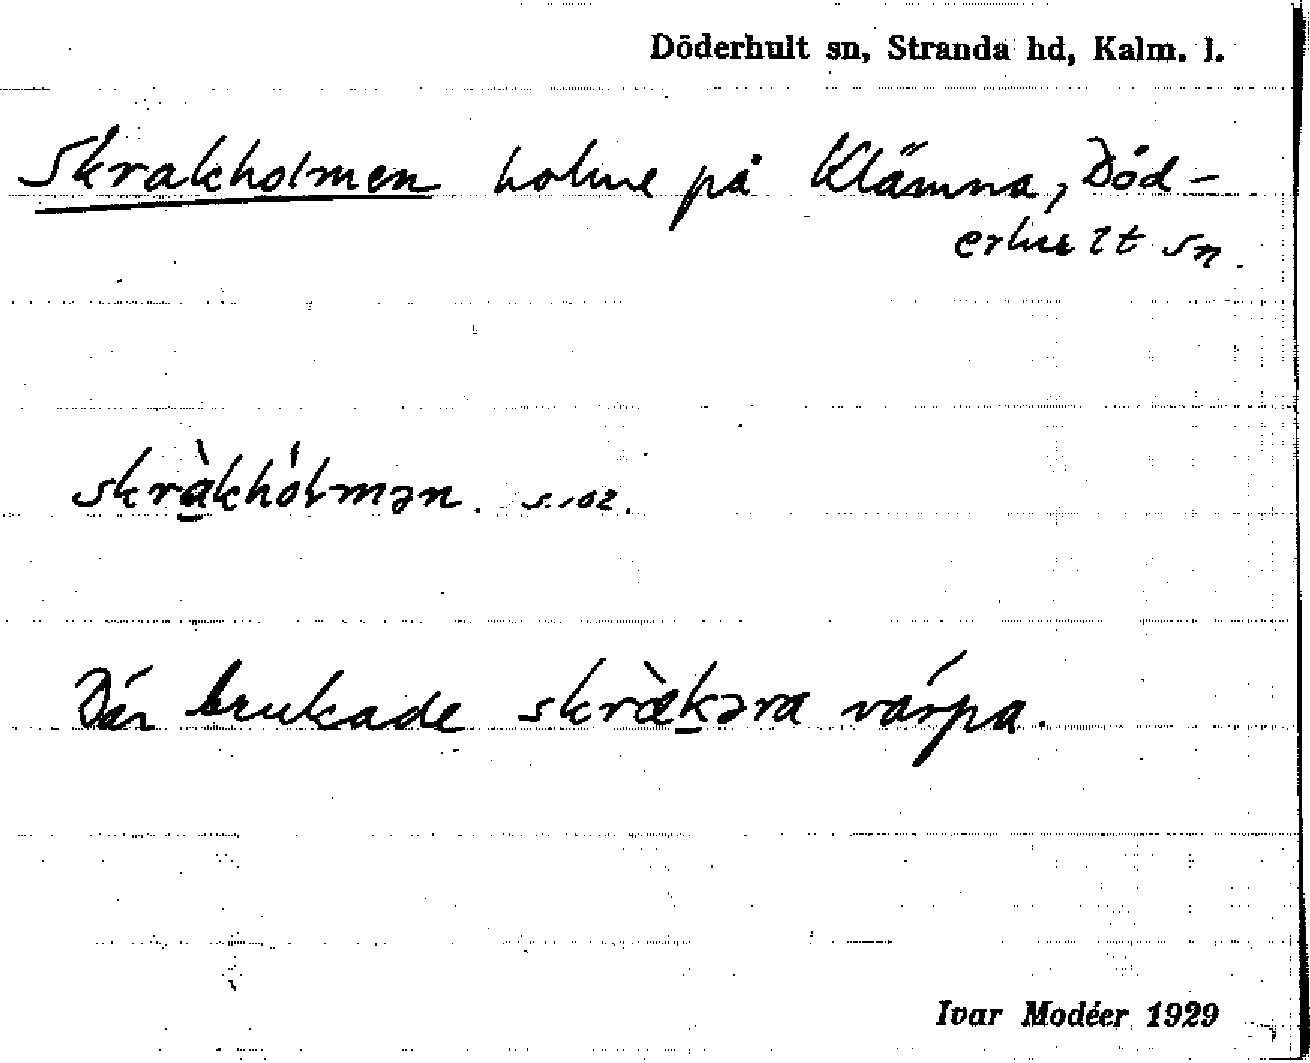 Döderhult sn, Stranda hd, Kalm. l.
Skrakholmen holme på Klämna, Död-
erhult sn.
skrà̠khólmən. s. 102.
Där brukade skræ̠̀kəra várpa.
Ivar Modéer 1929